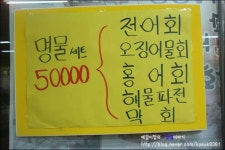 명물세트
50000
전어회
오징어물회
홍어회
해물파전
막회
http://blog.naver.com/kysuk0381